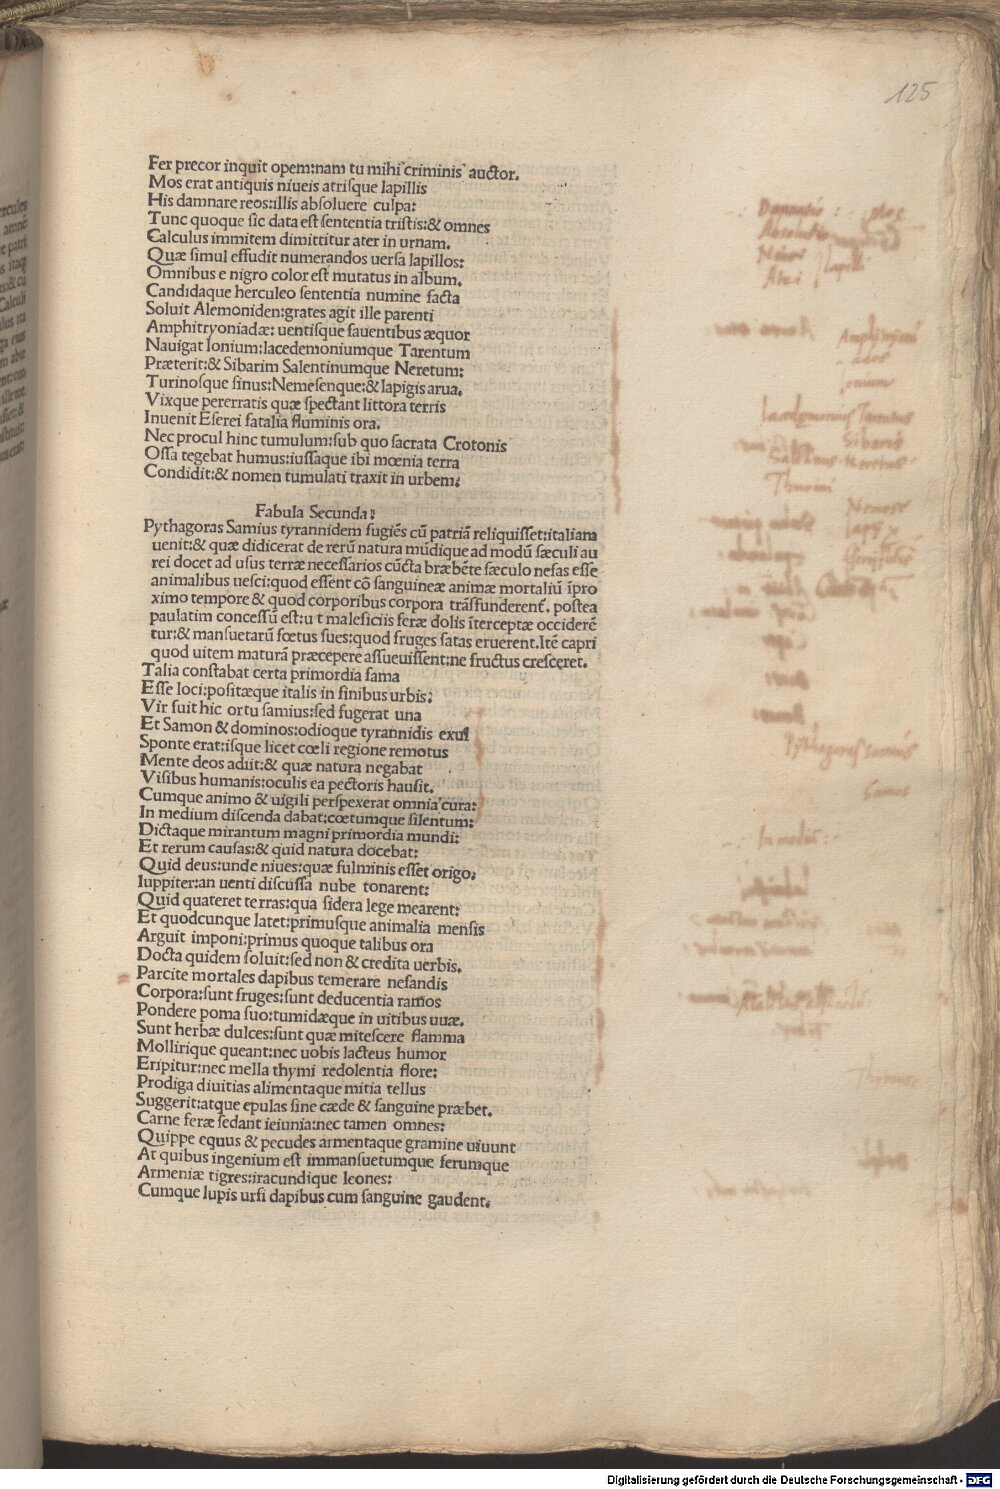 125
Fer precor inquit opem:nam tu mihi criminis auctor.
Mos erat antiquis niueis atriſque lapillis
His damnare reos:illis abſoluere culpa:
Tunc quoque ſic data eſt ſententia triſtis:& omnes
Calculus immitem dimittitur ater in urnam.
Quæ ſimul effudit numerandos uerſa lapillos:
Omnibus e nigro color eſt mutatus in album.
Candidaque herculeo ſententia numine facta
Soluit Alemoniden:grates agit ille parenti
Amphitryoniadæ: uentiſque fauentibus æquor
Nauigat Ionium:lacedemoniumque Tarentum
Præterit:& Sibarim Salentinumque Neretum:
Turinoſque ſinus:Nemeſenque:& Iapigis arua.
Vixque pererratis quæ ſpectant littora terris
Inuenit Eſerei fatalia fluminis ora.
Nec procul hinc tumulum:ſub quo ſacrata Crotonis
Oſſa tegebat humus:iuſſaque ibi mœnia terra
Condidit:& nomen tumulati traxit in urbem:
Fabula Secunda:
Pythagoras Samius tyrannidem fugiēs cū patriā reliquiſſet:italiam
uenit:& quæ didicerat de rerū natura mūdique ad modū ſæculi au
rei docet ad uſus terræ neceſſarios cūcta bræbēte ſæculo nefas eſſe
animalibus ueſci:quod eſſent cō ſanguineæ animæ mortaliū īpro
ximo tempore & quod corporibus corpora trāſfunderent̄. poſtea
paulatim conceſſū eſt:u t maleficiis feræ dolis īterceptæ occiderē
tur:& manſuetarū fœtus ſues:quod fruges ſatas eruerent.Itē capri
quod uitem maturā præcepere aſſueuiſſent:ne fructus creſceret.
Talia conſtabat certa primordia fama
Eſſe loci:poſitæque italis in finibus urbis.
Vir fuit hic ortu ſamius:ſed fugerat una
Et Samon & dominos:odioque tyrannidis exul
Sponte erat:iſque licet cœli regione remotus
Mente deos adiit:& quæ natura negabat
Viſibus humanis:oculis ea pectoris hauſit.
Cumque animo & uigili perſpexerat omnia cura:
In medium diſcenda dabat:cœtumque ſilentum:
Dictaque mirantum magni primordia mundi:
Et rerum cauſas:& quid natura docebat:
Quid deus:unde niues:quæ fulminis eſſet origo.
Iuppiter:an uenti diſcuſſa nube tonarent:
Quid quateret terras:qua ſidera lege mearent:
Et quodcunque latet:primuſque animalia menſis
Arguit imponi:primus quoque talibus ora
Docta quidem ſoluit:ſed non & credita uerbis.
Parcite mortales dapibus temerare nefandis
Corpora:ſunt fruges:ſunt deducentia ramos
Pondere poma ſuo:tumidæque in uitibus uuæ.
Sunt herbæ dulces:ſunt quæ miteſcere flamma
Mollirique queant:nec uobis lacteus humor
Eripitur:nec mella thymi redolentia flore:
Prodiga diuitias alimentaque mitia tellus
Suggerit:atque epulas ſine cæde & ſanguine præbet.
Carne feræ ſedant ieiunia:nec tamen omnes:
Quippe equus & pecudes armentaque gramine uiuunt
At quibus ingenium eſt immanſuetumque ferumque
Armeniæ tigres:iracundique leones:
Cumque lupis urſi dapibus cum ſanguine gaudent.
Mos
lapilli
Ionium
Lacedemonius Tarentus
Sibaris
Thurini
Pythagoras samius
Samos
Digitalisierung gefördert durch die Deutsche Forschungsgemeinschaft - DFG